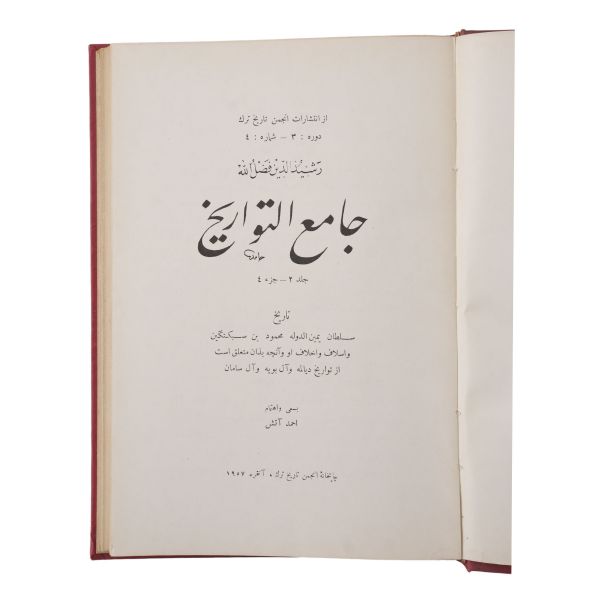 از انتشارات انجمن تاریخ ترک
دوره : ۳ — شماره : ٤
رشیدالدین فضل الله
جامع التواریخ
حامد
جلد ۲ — جزء ٤
تاریخ
سلطان یمین‌الدوله محمود بن سبکتگین
واسلاف واخلاف او وآنچه بذان متعلق است
از تواریخ دیالمه وآل بویه وآل سامان
بسعی واهتمام
احمد آتش
چاپخانهٔ انجمن تاریخ ترک ، آنقره ۱۹٥۷